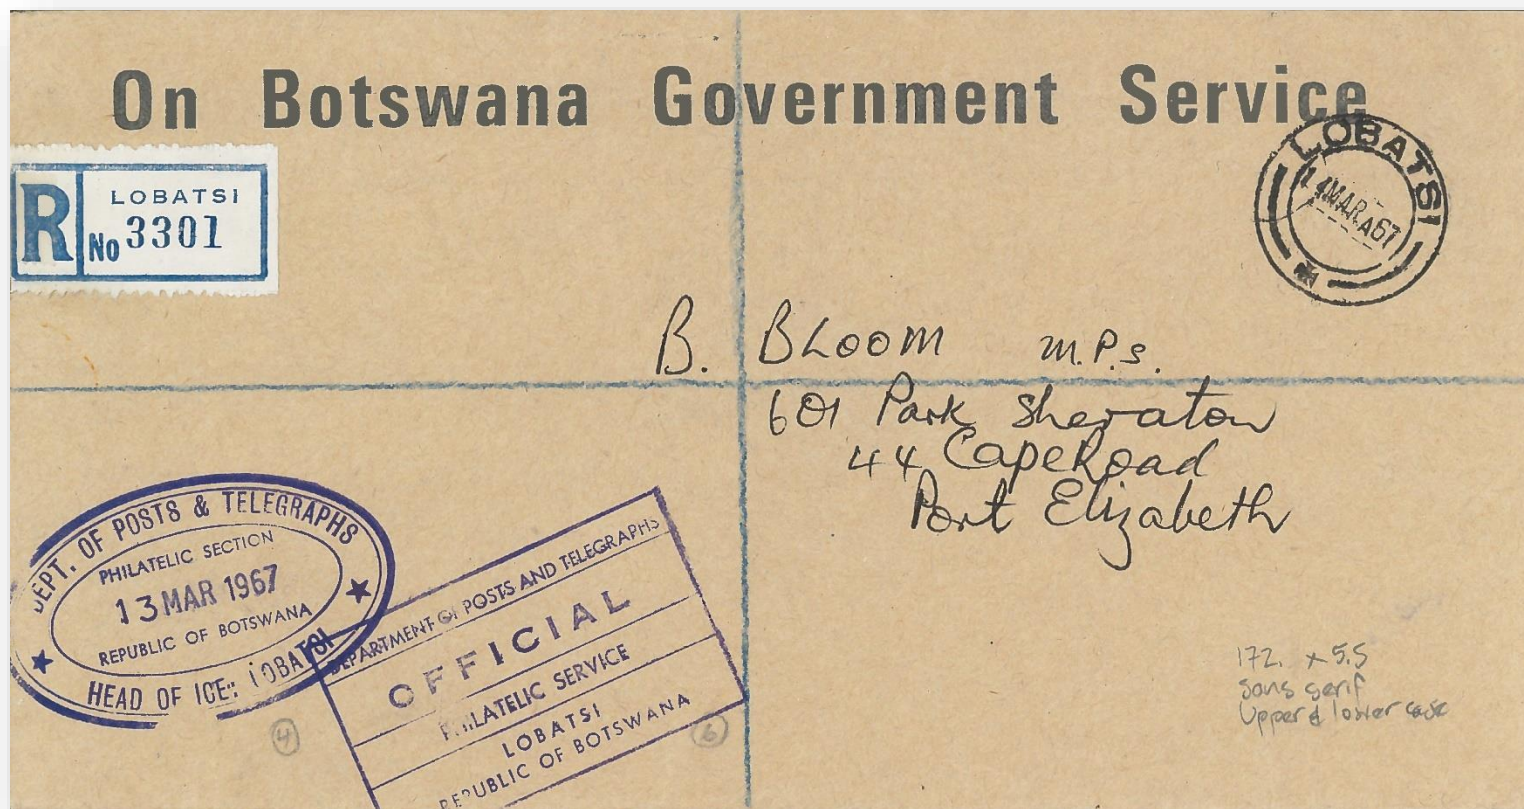 On Botswana Government Service
R LOBATSI
No 3301
LOBATSI
14 MAR. A 67
B. BLOOM M.P.S.
601 Park Sheraton
44 Cape Road
Port Elizabeth
DEPT. OF POSTS & TELEGRAPHS
PHILATELIC SECTION
13 MAR 1967
REPUBLIC OF BOTSWANA
HEAD OF ICE: LOBATSI
DEPARTMENT OF POSTS AND TELEGRAPHS
OFFICIAL
PHILATELIC SERVICE
LOBATSI
REPUBLIC OF BOTSWANA
4
6
172. x 5.5
sans serif
Upper & lower case